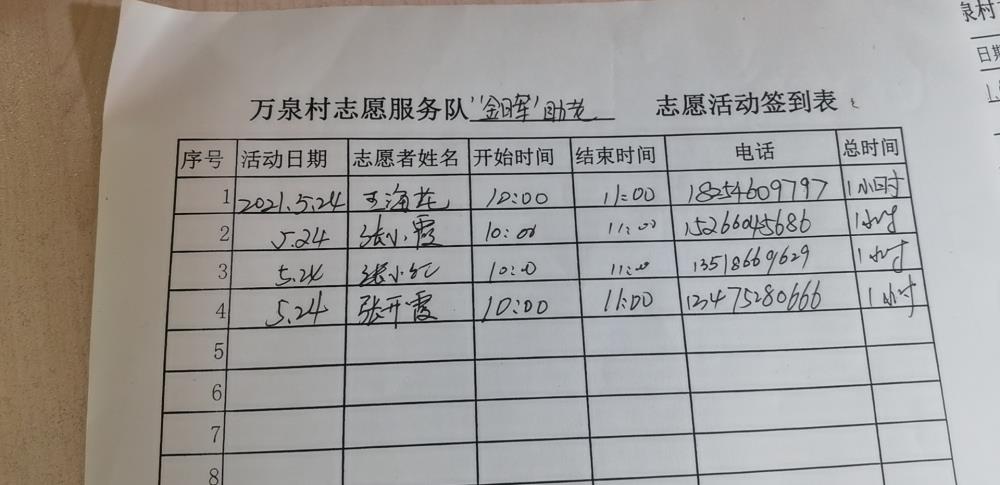 万泉村志愿服务队“金晖”助老 志愿活动签到表
序号 活动日期 志愿者姓名 开始时间 结束时间 电话 总时间
1 2021.5.24 王海花 10:00 11:00 18254609797 1小时
2 5.24 张小霞 10:00 11:00 15266045686 1小时
3 5.24 张小红 10:00 11:00 13518669629 1小时
4 5.24 张开霞 10:00 11:00 123475280666 1小时
5
6
7
8
泉村
日期